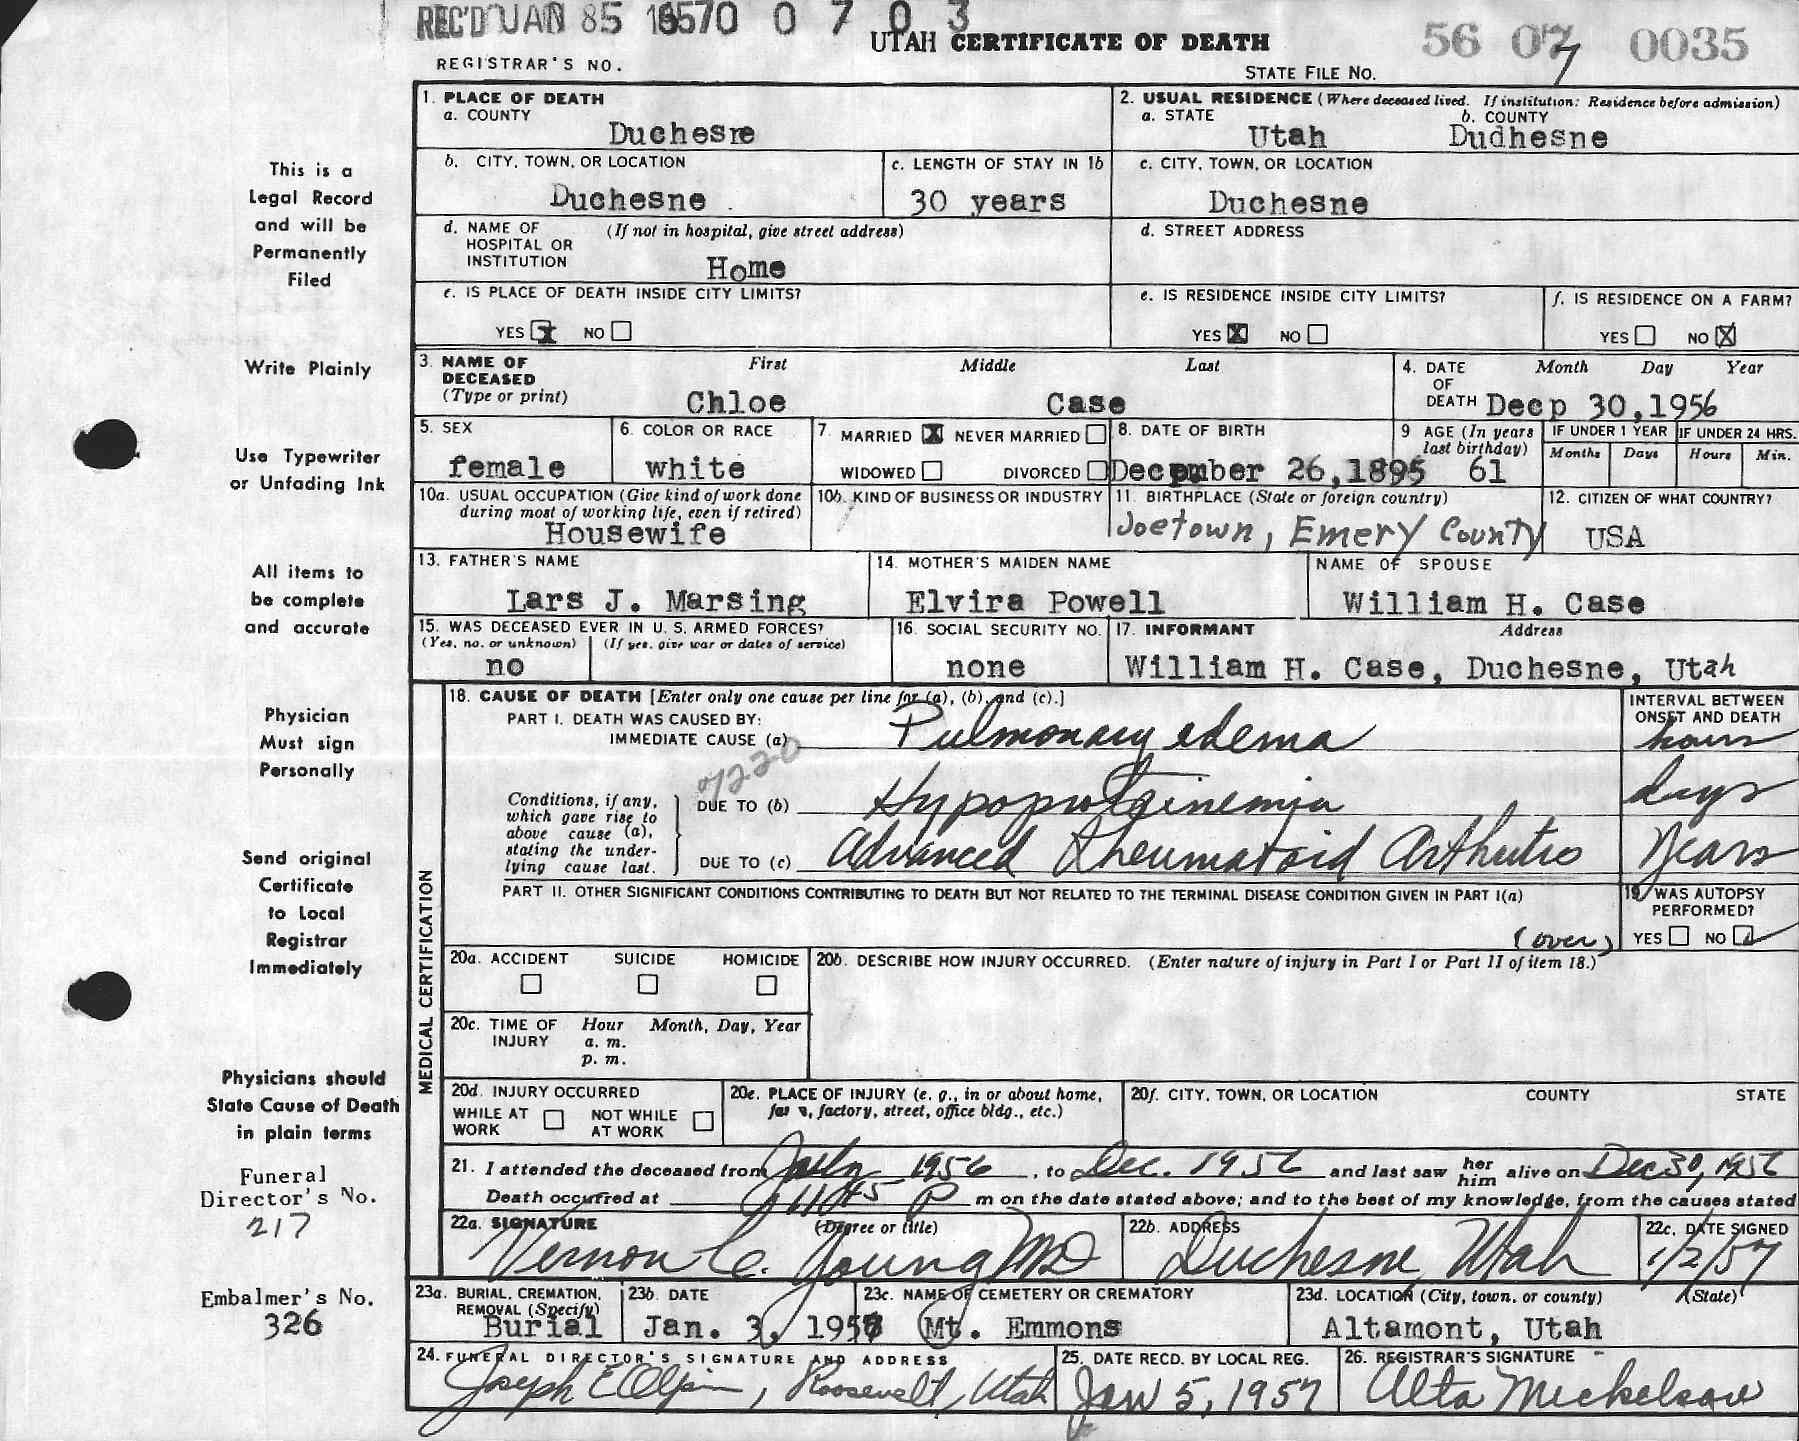 REC'D JAN 8 5 1957 0 0 7 0 3
UTAH CERTIFICATE OF DEATH
56 07 0035
REGISTRAR'S NO.
STATE FILE NO.
1. PLACE OF DEATH
a. COUNTY
Duchesne
2. USUAL RESIDENCE (Where deceased lived. If institution: Residence before admission)
a. STATE
Utah
b. COUNTY
Dudhesne
This is a
Legal Record
and will be
Permanently
Filed
b. CITY, TOWN, OR LOCATION
Duchesne
c. LENGTH OF STAY IN 1b
30 years
c. CITY, TOWN, OR LOCATION
Duchesne
d. NAME OF HOSPITAL OR INSTITUTION
(If not in hospital, give street address)
Home
d. STREET ADDRESS
e. IS PLACE OF DEATH INSIDE CITY LIMITS?
YES X NO
e. IS RESIDENCE INSIDE CITY LIMITS?
YES X NO
f. IS RESIDENCE ON A FARM?
YES NO X
Write Plainly
3. NAME OF DECEASED
(Type or print)
First Middle Last
Chloe Case
4. DATE OF DEATH
Month Day Year
Decp 30,1956
Use Typewriter
or Unfading Ink
5. SEX
female
6. COLOR OR RACE
white
7. MARRIED X NEVER MARRIED
WIDOWED DIVORCED
8. DATE OF BIRTH
December 26,1895
9 AGE (In years last birthday)
61
IF UNDER 1 YEAR
Months Days
IF UNDER 24 HRS.
Hours Min.
10a. USUAL OCCUPATION (Give kind of work done during most of working life, even if retired)
Housewife
10b. KIND OF BUSINESS OR INDUSTRY
11. BIRTHPLACE (State or foreign country)
Joetown, Emery County
12. CITIZEN OF WHAT COUNTRY?
USA
All items to
be complete
and accurate
13. FATHER'S NAME
Lars J. Marsing
14. MOTHER'S MAIDEN NAME
Elvira Powell
NAME OF SPOUSE
William H. Case
15. WAS DECEASED EVER IN U. S. ARMED FORCES?
(Yes, no, or unknown) (If yes, give war or dates of service)
no
16. SOCIAL SECURITY NO.
none
17. INFORMANT Address
William H. Case, Duchesne, Utah
Physician
Must sign
Personally
MEDICAL CERTIFICATION
18. CAUSE OF DEATH [Enter only one cause per line for (a), (b), and (c).]
PART I. DEATH WAS CAUSED BY:
IMMEDIATE CAUSE (a) Pulmonary edema
INTERVAL BETWEEN ONSET AND DEATH
hours
7220
Conditions, if any,
which gave rise to
above cause (a),
stating the under-
lying cause last.
DUE TO (b) Hypoproteinemia
days
DUE TO (c) Advanced Rheumatoid Arthritis
Years
Send original
Certificate
to Local
Registrar
Immediately
PART II. OTHER SIGNIFICANT CONDITIONS CONTRIBUTING TO DEATH BUT NOT RELATED TO THE TERMINAL DISEASE CONDITION GIVEN IN PART I(a)
(over)
19. WAS AUTOPSY PERFORMED?
YES NO
20a. ACCIDENT SUICIDE HOMICIDE
20b. DESCRIBE HOW INJURY OCCURRED. (Enter nature of injury in Part I or Part II of item 18.)
20c. TIME OF INJURY
Hour Month, Day, Year
a. m.
p. m.
Physicians should
State Cause of Death
in plain terms
20d. INJURY OCCURRED
WHILE AT WORK
NOT WHILE AT WORK
20e. PLACE OF INJURY (e. g., in or about home, farm, factory, street, office bldg., etc.)
20f. CITY, TOWN, OR LOCATION COUNTY STATE
21. I attended the deceased from July 1956, to Dec. 1956 and last saw her him alive on Dec 30, 1956
Death occurred at 11:45 P m on the date stated above; and to the best of my knowledge, from the causes stated
Funeral
Director's No.
217
22a. SIGNATURE (Degree or title)
Vernon C. Young MD
22b. ADDRESS
Duchesne, Utah
22c. DATE SIGNED
1/2/57
Embalmer's No.
326
23a. BURIAL, CREMATION, REMOVAL (Specify)
Burial
23b. DATE
Jan. 3, 1957
23c. NAME OF CEMETERY OR CREMATORY
Mt. Emmons
23d. LOCATION (City, town, or county) (State)
Altamont, Utah
24. FUNERAL DIRECTOR'S SIGNATURE AND ADDRESS
Joseph E Olpin, Roosevelt, Utah
25. DATE RECD. BY LOCAL REG.
Jan 5, 1957
26. REGISTRAR'S SIGNATURE
Alta Mickelsen